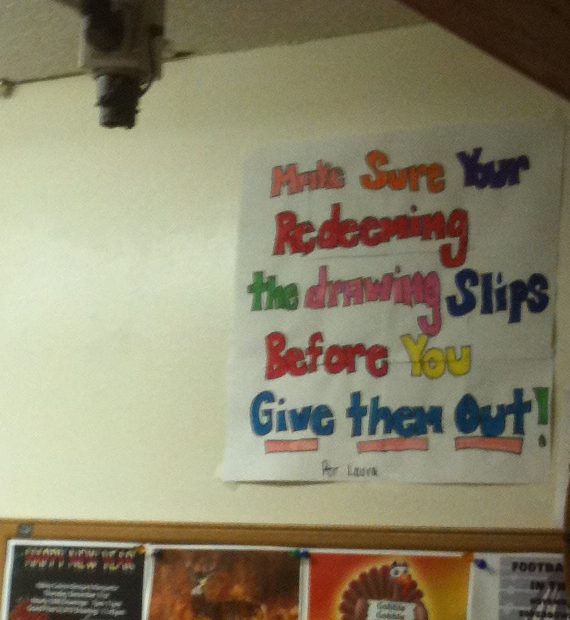 Make Sure Your
Redeeming
the drawing Slips
Before You
Give them Out!
Per Laura
HAPPY NEW YEAR
Gobble
Gobble
FOOTBA
IN TH